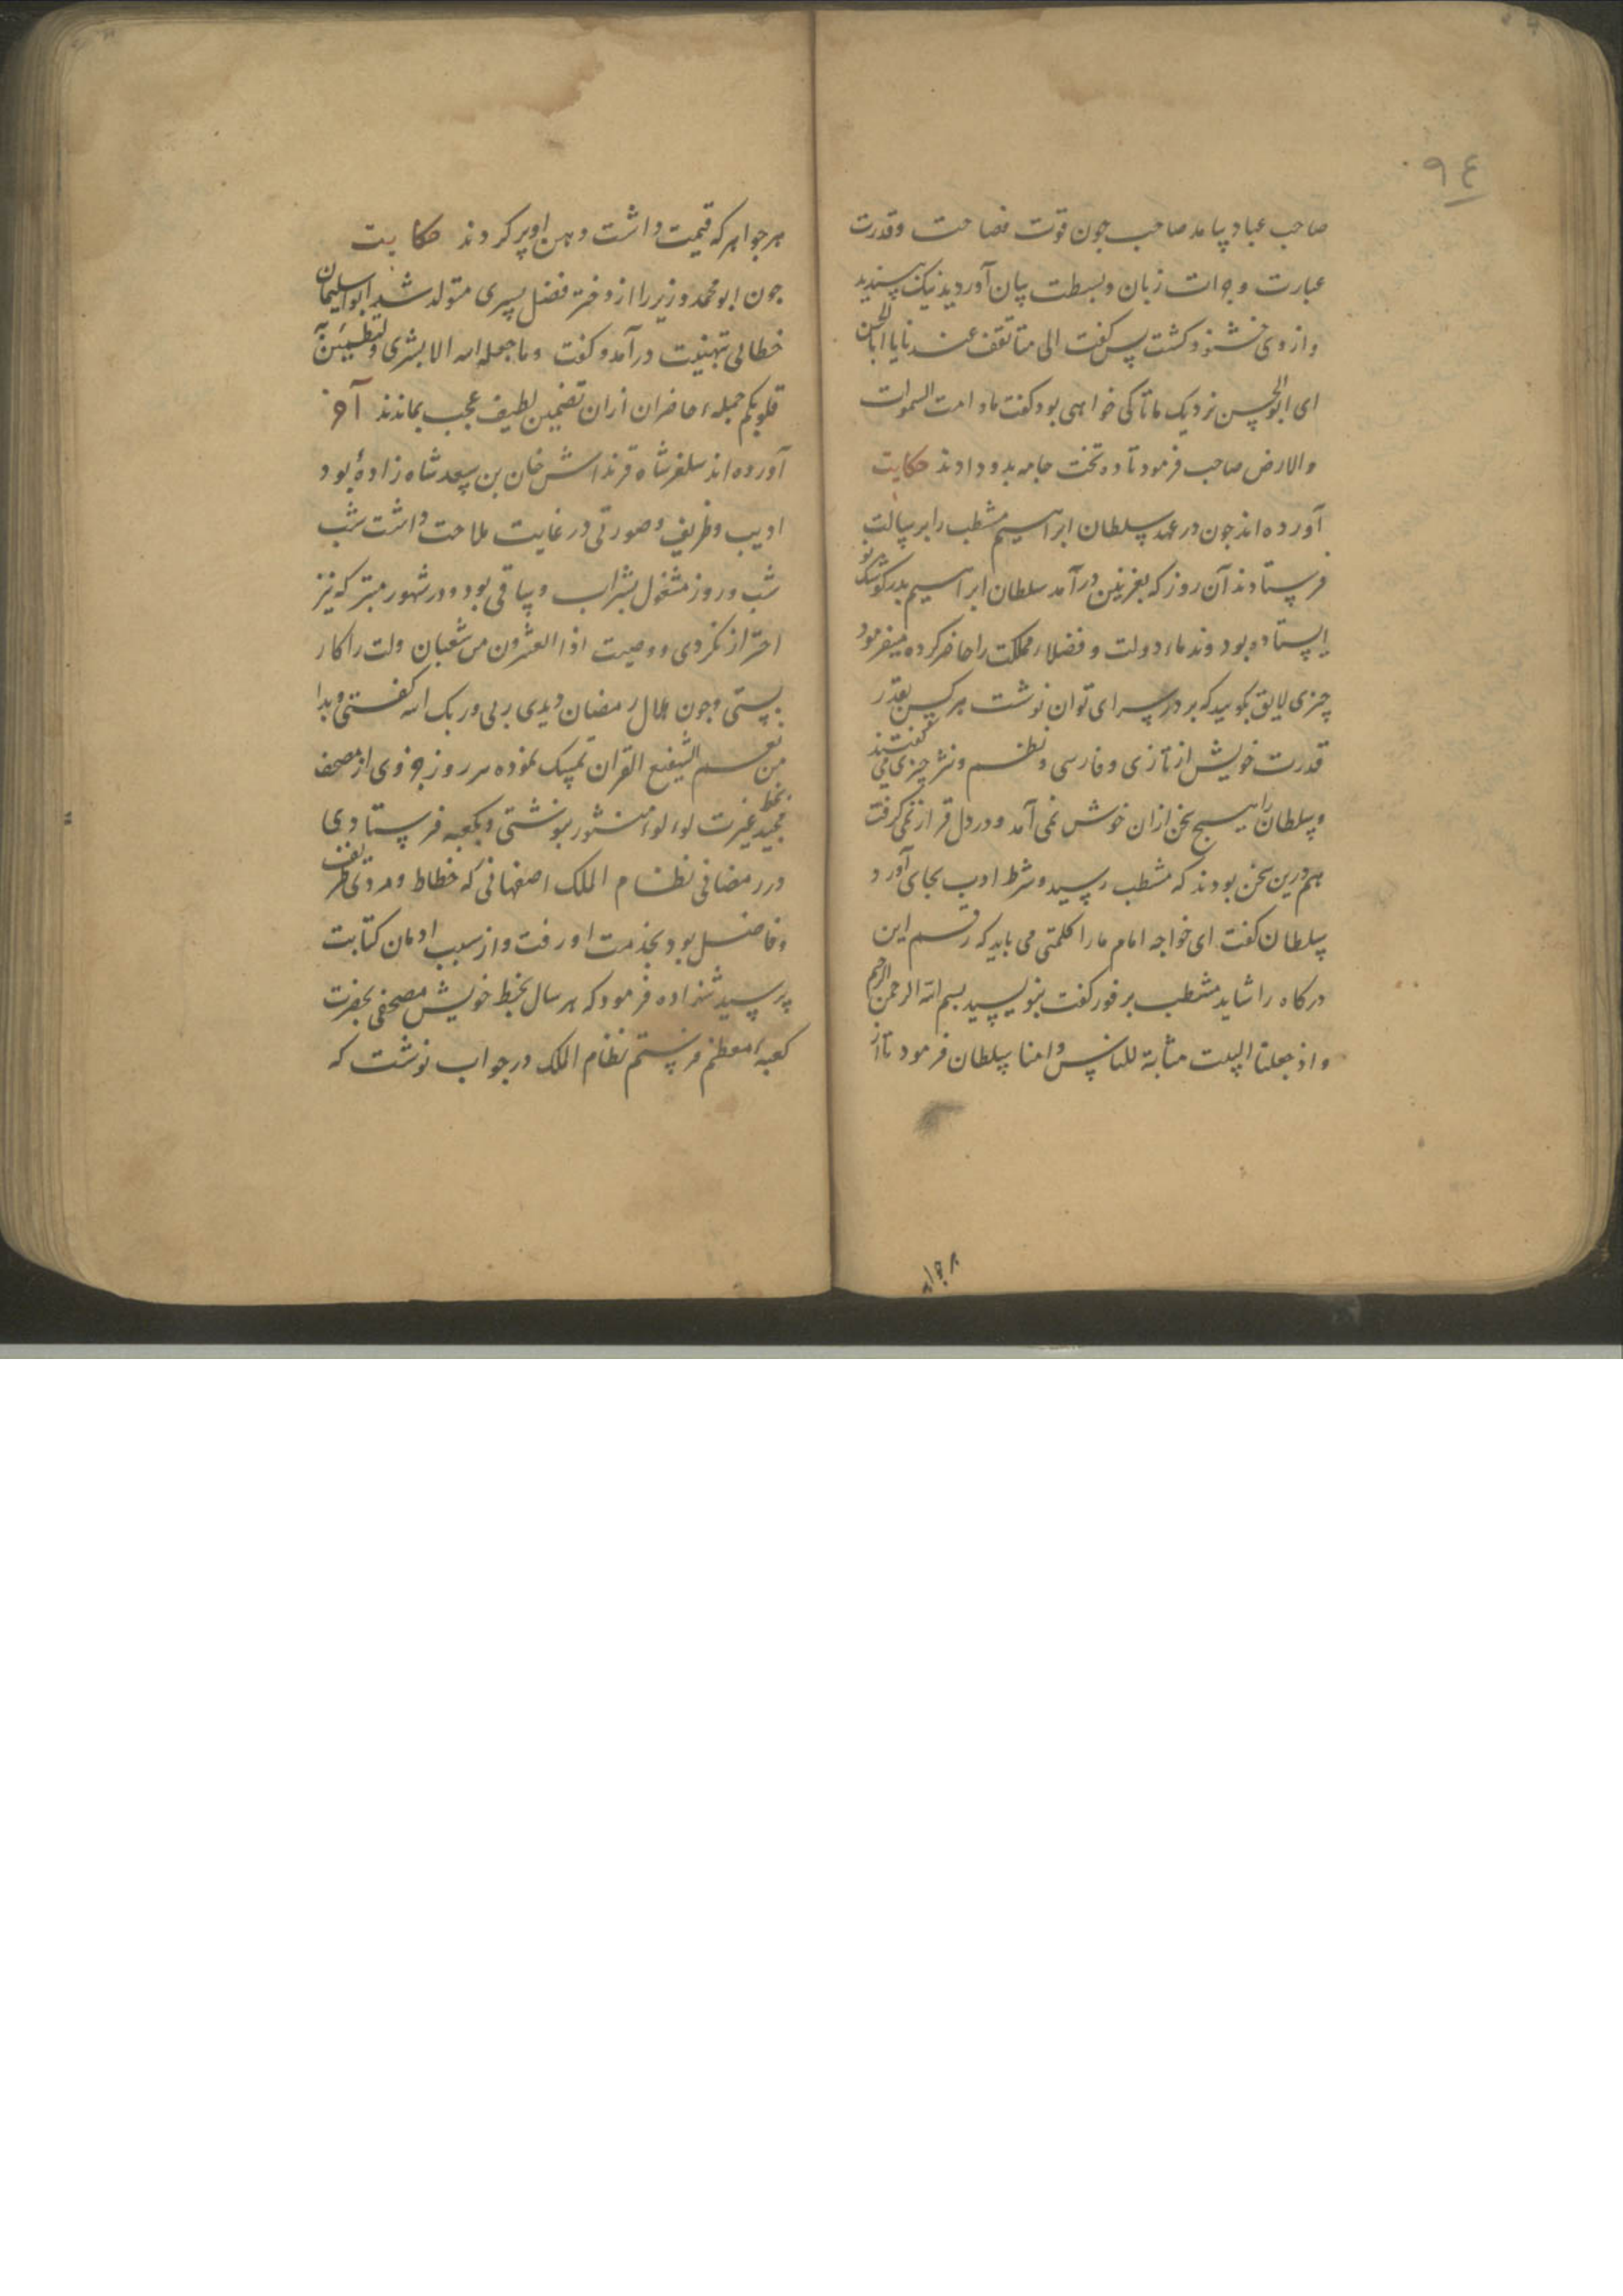 ٩٤
صاحب عباد بیامد صاحب چون قوت فصاحت و قدرت
عبارت و جرات زبان و بسطت بیان آورد بدید نیک پسندید
و از وی خشنود کشت پس کفت الی متا تقف عندنا یا ابا الحسن
ای ابو الحسن نزدیک ما تا کی خواهی بود کفت مادامت السموات
والارض صاحب فرمود تا ده تخت جامه بدو دادند حکایت
آورده اند چون در عهد سلطان ابراهیم مشطب را برسالت
فرستادند آن روز که بغزنین درآمد سلطان ابراهیم بدر کوشک نو
ایستاده بود و ندماء دولت و فضلاء مملکت را حاضر کرده میفرمود
چیزی لایق بکویید که بر در سرای توان نوشت هر کس بقدر
قدرت خویش از تازی و فارسی و نظم و نثر چیزی می کفتند
و سلطان را هیچ سخن ازان خوش نمی آمد و در دل قرار نمی کرفت
هم درین سخن بودند که مشطب رسید و شرط ادب بجای آورد
سلطان کفت ای خواجه امام ما را کلمتی می باید که رقم این
درکاه را شاید مشطب بر فور کفت بنویسید بسم الله الرحمن الرحیم
و اذ جعلنا البیت مثابة للناس و امنا سلطان فرمود تا از
هر جواهر که قیمت داشت دهن او پر کردند حکایت
جون ابو محمد وزیر را از دختر فضل پسری متولد شد ابو سلیمان
خطابی تهنیت درآمد و کفت وما جعله الله الا بشری ولتطمئن به
قلوبکم جمله حاضران ازان تضمین لطیف عجب بماندند آخر
آورده اند سلغر شاه فرزند اتش خان بن سعد شاه زاده بود
ادیب و ظریف و صورتی در غایت ملاحت داشت شب
شب و روز مشغول بشراب و ساقی بود و در شهور متبرکه نیز
احتراز نکردی و وصیت اذا العشرون من شعبان ولت را کار
بستی و جون هلال رمضان دیدی ربی و ربک الله کفتی و بدا
من نعم الشفیع القران تمسک نموده هر روز جزوی از مصحف
مجید بخط غیرت لولوء منثور بنوشتی و بکعبه فرستادی
در رمضانی نظام الملک اصفهانی که خطاط و مردی ظریف
و فاضل بود بخدمت او رفت و از سبب ادمان کتابت
پرسید شهزاده فرمود که هر سال بخط خویش مصحفی بحضرت
کعبه معظم فرستم نظام الملک در جواب نوشت که